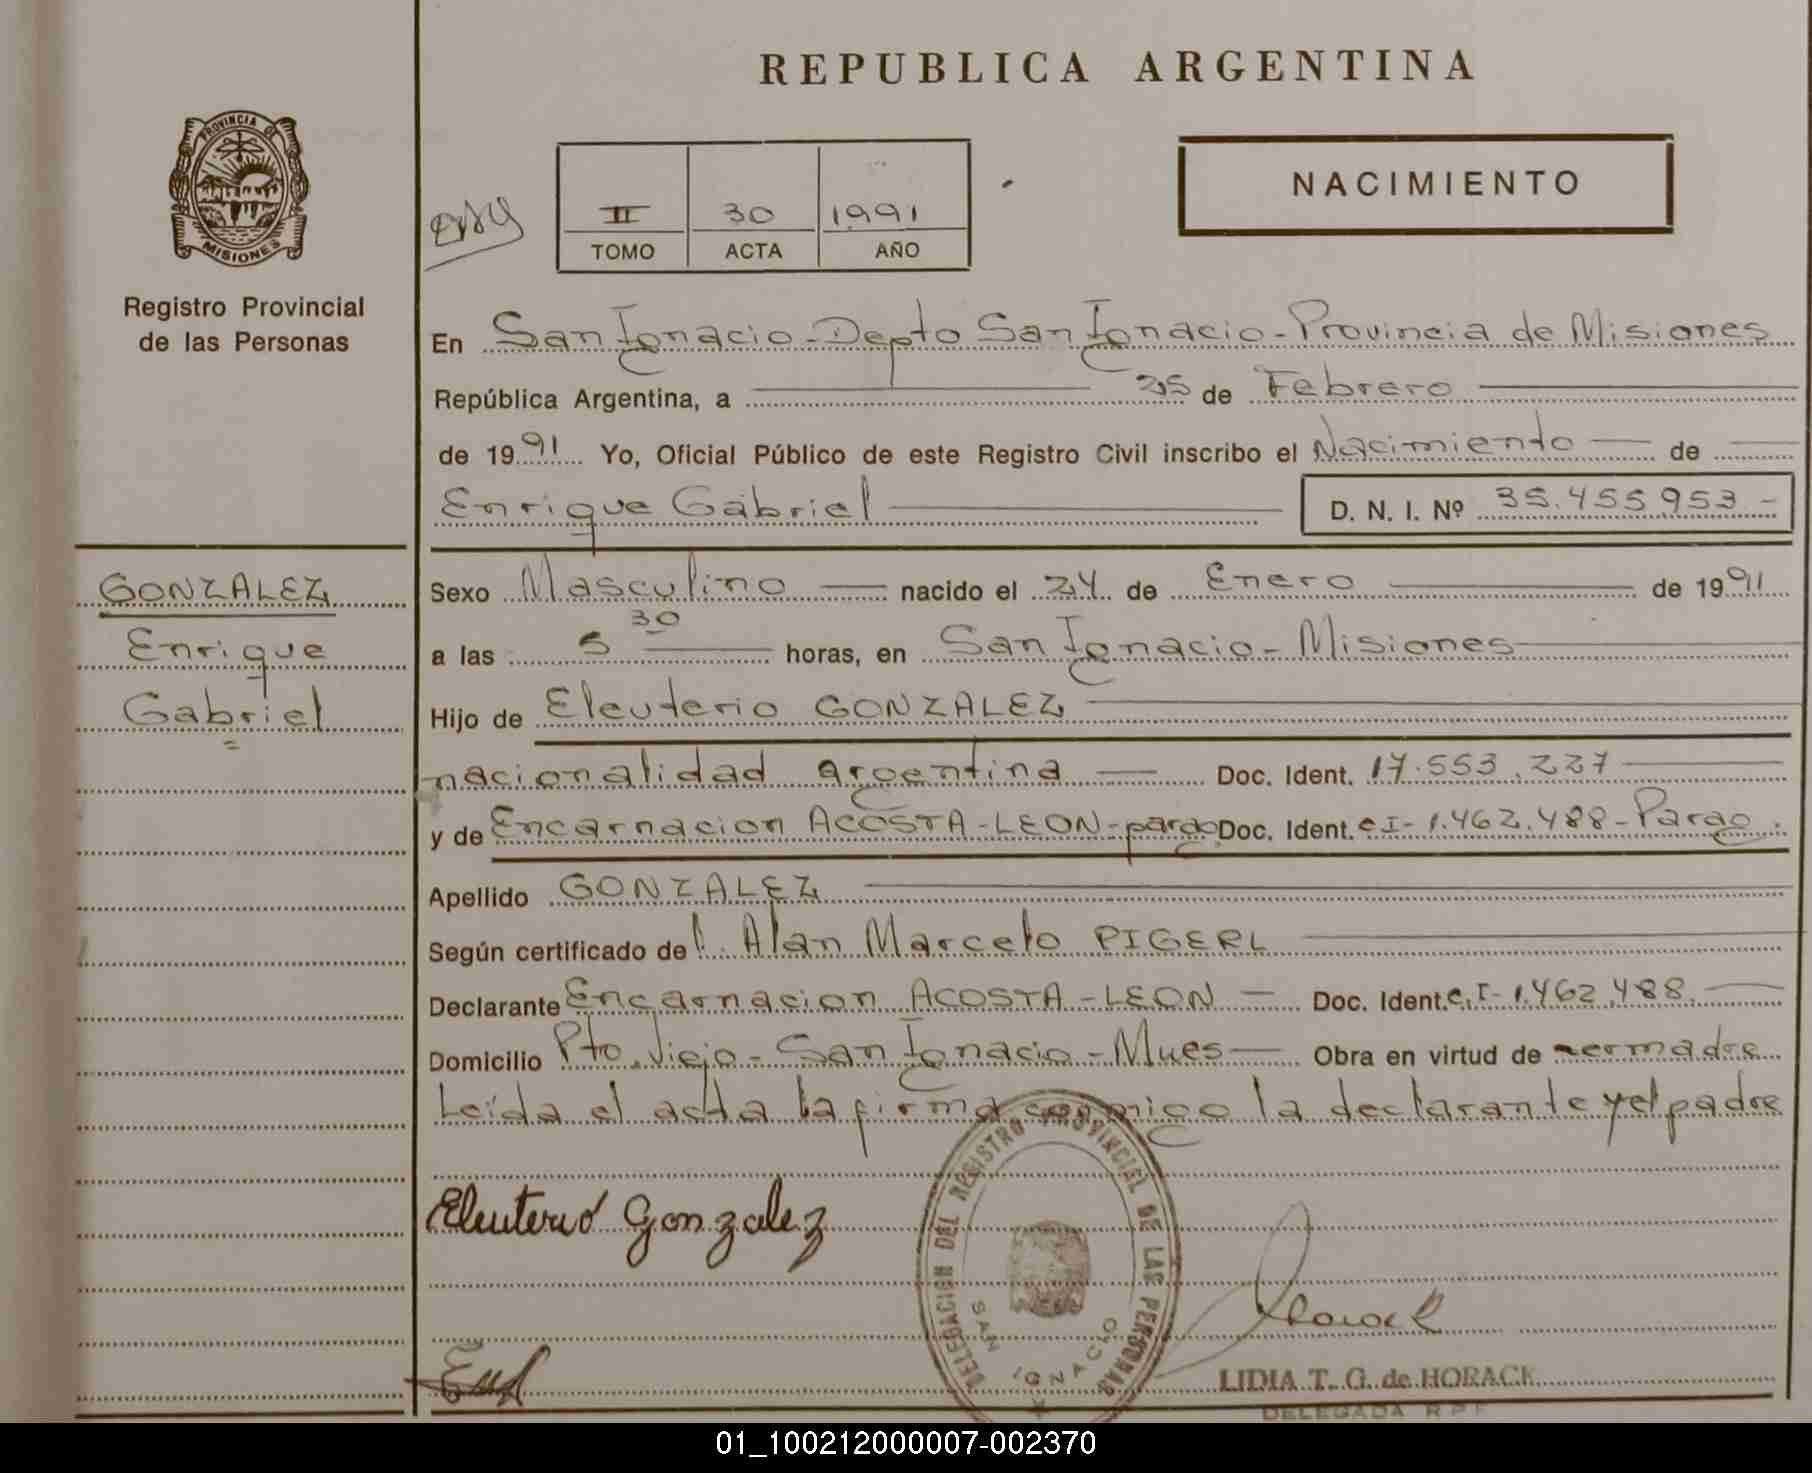 REPUBLICA ARGENTINA
PROVINCIA DE
MISIONES
Registro Provincial
de las Personas
NACIMIENTO
II 30 1991
TOMO ACTA AÑO
En San Ignacio - Depto San Ignacio - Provincia de Misiones
República Argentina, a 25 de Febrero
de 1991 Yo, Oficial Público de este Registro Civil inscribo el Nacimiento de
Enrique Gabriel D. N. I. Nº 35.455.953 -
GONZALEZ
Enrique
Gabriel
Sexo Masculino nacido el 24 de Enero de 1991
a las 5 30 horas, en San Ignacio - Misiones
Hijo de Eleuterio GONZALEZ
nacionalidad argentina Doc. Ident. 17.553.227
y de Encarnacion ACOSTA - LEON - parag Doc. Ident. C I - 1.462.488 - Parag.
Apellido GONZALEZ
Según certificado de Alan Marcelo PIGERL
Declarante Encarnacion ACOSTA - LEON Doc. Ident. C.I - 1.462.488.
Domicilio Pto. Viejo - San Ignacio - Mnes Obra en virtud de ser madre
Leída el acta la firma conmigo la declarante y el padre
Eleuterio Gonzalez
DELEGACION DEL REGISTRO PROVINCIAL DE LAS PERSONAS
SAN IGNACIO
LIDIA T. G. de HORACK
DELEGADA R P P
01_100212000007-002370